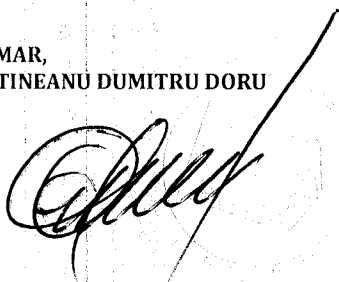 MAR,
TINEANU DUMITRU DORU